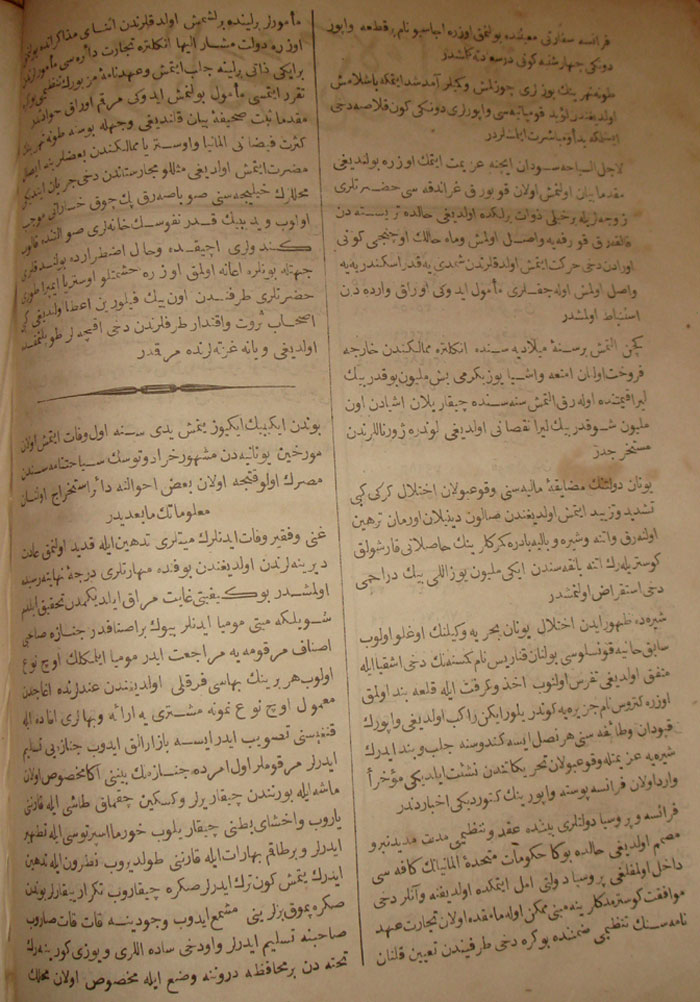 فرانسه سفارتی معیتنده بولنمق اوزره اجاسیو نام بر قطعه واپور
دونکی چهارشنبه کونی درسعادته کلمشدر
طونه نهرینك بوزلری چوزیلش وکیلر آمد شد ایتمکه باشلامش
اولدیغندن لوید قومپانیه سی واپورلری دونکی کون قلاصه دخی
ایشلمکه بدأ ومباشرت ایتمشلردر
لاجل السیاحه سودان ایچنه عزیمت ایتمك اوزره بولندیغی
مقدما بیان اولنمش اولان قوبورق غراندوقه سی حضرتلری
زوجه لریله برخیلی ذوات برلکده اولدیغی حالده تریسته دن
قالقه رق قورفه یه واصل اولمش وماه حالك اوچنجی کونی
اورادن دخی حرکت ایتمش اولدقلرندن شمدی یه قدر اسکندریه یه
واصل اولمش اوله جقلری مأمول ایدوکی اوراق وارده دن
استنباط اولنمشدر
کچن التمش بر سنۀ میلادیه سنده انکلتره ممالکندن خارجه
فروخت اولنان امتعه واشیا یوز یکرمی بش ملیون بو قدر بیك
لیرا قیمتنده اوله رق التمش سنه سنده چیقاریلان اشیادن اون
ملیون شو قدر بیك لیرا نقصانی اولدیغی لوندره ژورناللرندن
مستخرجدر
یونان دولتنك مضایقۀ مالیه سنی وقوعبولان اختلال کرکی کبی
تشدید وتزیید ایتمش اولدیغندن صالون دینیلان اورمان ترهین
اولنه رق واتنه وشیره وبالیه بادره کمرکلرینك حاصلاتی قارشولق
کوستریله رك اتنه بانقه سندن ایکی ملیون یوز اللی بیك دراخمی
دخی استقراض اولنمشدر
شیره ده ظهور ایدن اختلال یونان بحریه وکیلنك اوغلو اولوب
سابق خانیه قونسلوسی بولنان قناریس نام کمسنه نك دخی اشقیا ایله
متفق اولدیغی تفرس اولنوب اخذ وکرفت ایله قلعه بند اولمق
اوزره کتروس نام جزیره یه کوندریلور ایکن راکب اولدیغی واپورك
قبودان وطائفه سنی هر نصل ایسه کندوسنه جلب وبند ایدرك
شیره یه عزیمتله وقوعبولان تحریکاتندن نشئت ایلدیکی مؤخراً
وارد اولان فرانسه پوسته واپورینك کتوردیکی اخباردندر
فرانسه وپروسیا دولتلری بیننده عقد وتنظیمی مدت مدیدن برو
مصمم اولدیغی حالده بوکا حکومات متحدۀ المانیانك کافه سی
داخل اولملغی پروسیا دولتی امل ایتمکده اولدیغنه وآنلر دخی
موافقت کوسترمدکلرینه مبنی ممکن اوله مامقده اولان تجارت عهد
نامه سنك تنظیمی ضمننده بو کره دخی طرفیندن تعیین قلنان
مأمورلر برلینده برلشمش اولدقلرندن اثنای مذاکراتده بولنمق
اوزره دولت مشار الیها انکلتره تجارت دائره سی مأمورلرندن
بر ایکی ذاتی برلینه جلب ایتمش وعهدنامۀ مزبورك تنظیمی
تقرر ایتمسی مأمول بولنمش ایدوکی مرقم اوراق حوادثدر
مقدما ثبت صحیفۀ بیان قلندیغی وجهله بو سنه طونه نهرینك
کثرت فیضانی المانیا واوستریا ممالکندن بعضلرینه ایصال
مضرت ایتمش اولدیغی مثللو مجارستاندن دخی جریان ایتدیکی
محللرك خیلیجه سنی صو باصه رق پك چوق خساراتی موجب
اولوب ویدی بیك قدر نفوسك خانه لری صو التنده قالوب
کندولری اچیقده وحال اضطرارده بولندقلری
جهتله بونلره اعانه اولمق اوزره حشمتلو اوستریا ایمپراطوری
حضرتلری طرفندن اون بیك فیلورین اعطا اولندیغی کبی
اصحاب ثروت واقتدار طرفلرندن دخی اقچه لر طوپلنمقده
اولدیغی ویانه غزته لرنده مرقمدر
بوندن ایکی بیك ایکیوز یتمش یدی سنه اول وفات ایتمش اولان
مورخین یونانیه دن مشهور خرادوتوسك سیاحتنامه سندن
مصرك اولوقتجه اولان بعض احوالنه دائر استخراج اولنان
معلوماتك مابعدیدر
غنی وفقیر وفات ایدنلرك میتلری تدهین ایله قدید اولنمق عادت
دیرینه لرندن اولدیغندن بو فنده مهارتلری درجۀ نهایته رسیده
اولمشدر بو کیفیتی غایت مراق ایلدیکمدن تحقیق ایلدم
شویلکه میتی مومیا ایدنلر بیوك بر اصنافدر جنازه صاحبی
اصناف مرقومه یه مراجعت ایدر مومیا ایتمکلك اوچ نوع
اولوب هر برینك بهاسی فرقلی اولدیغندن عندلرنده اغاجدن
معمول اوچ نوع نمونه مشتری یه ارائه وبهالری افاده ایله
قنغیسنی تصویب ایدر ایسه بازارلق ایدوب جنازه یی تسلیم
ایدرلر مرقوملر اول امرده جنازه نك بیننی اکا مخصوص اولان
ماشه ایله بورنندن چیقاریرلر وکسکین چقمق طاشی ایله قارننی
یاروب واخشای بطنی چیقاریلوب خورما اسپرتوسی ایله تطهیر
ایدرلر وبر طاقم بهارات ایله قارننی طولدیروب نطرون ایله تدهین
ایدرك یتمش کون ترك ایدرلر صکره چیقاروب تکرار ییقارلر بوندن
صکره پموق بزلرینی مشمع ایدوب وجودینه قات قات صاروب
صاحبنه تسلیم ایدرلر واودخی ساده اللری ویوزی کورینه رك
تخته دن بر محافظه درونه وضع ایله مخصوص اولان محلك